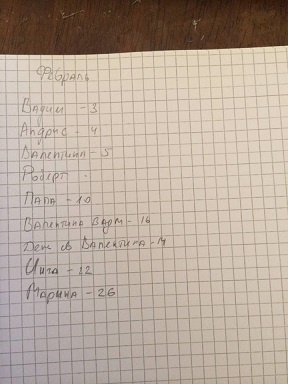 Февраль
Вадим - 3
Андрис - 4
Валентина - 5
Роберт -
Папа - 10
Валентина Вадм - 16
День св Валентина - 14
Инга - 22
Марина - 26